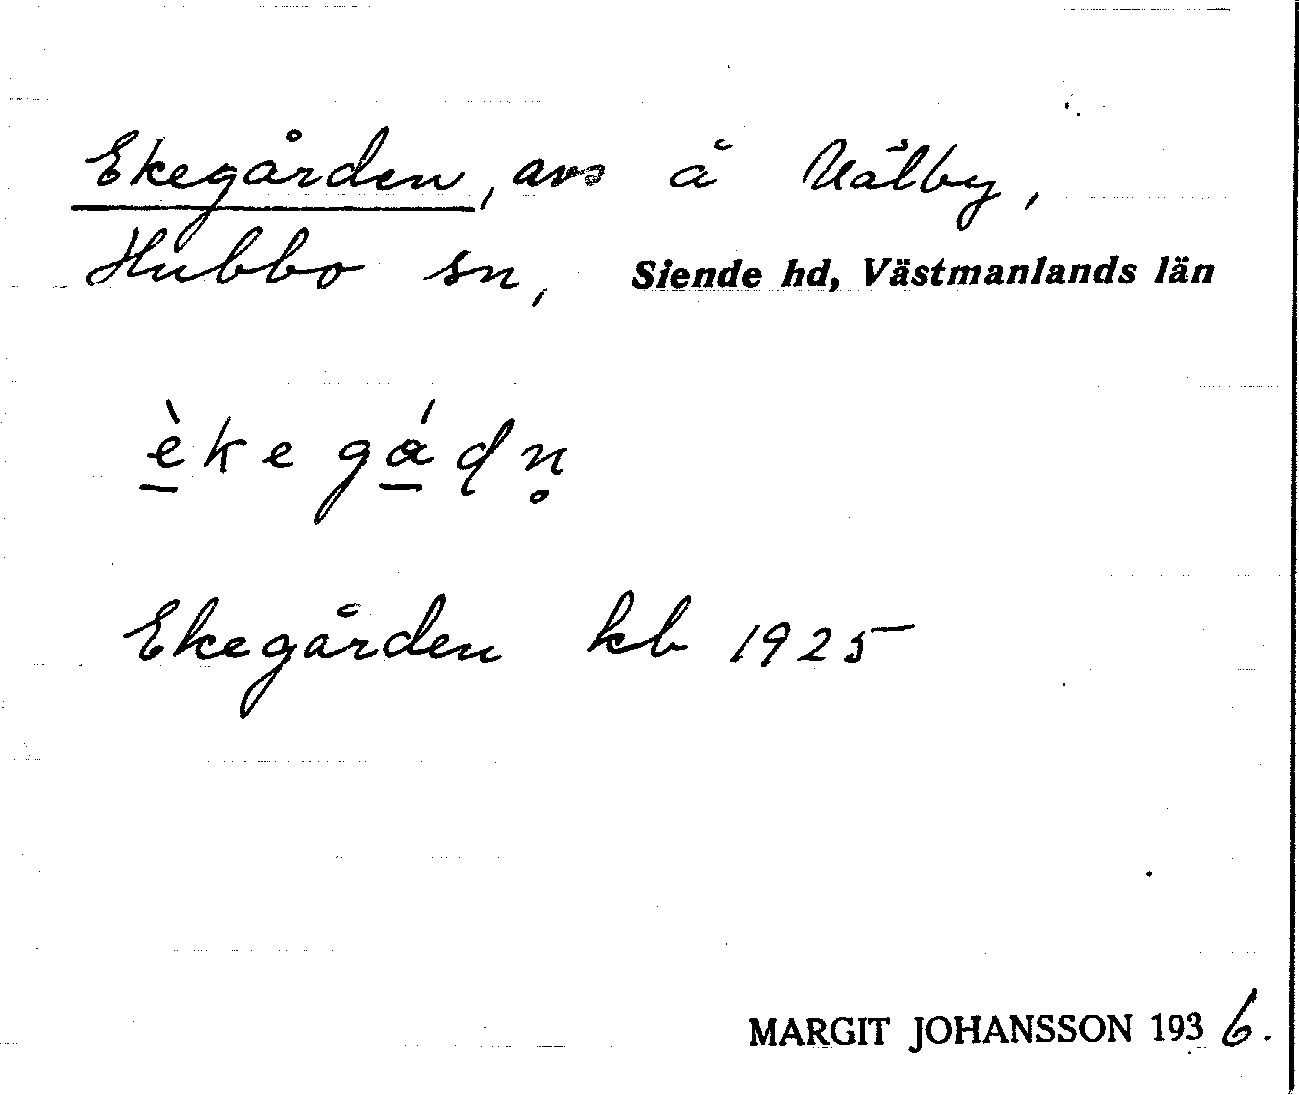 Ekegården, avs å Målby,
Hubbo sn, Siende hd, Västmanlands län
èkegádn̥
Ekegården kb 1925
MARGIT JOHANSSON 1936.